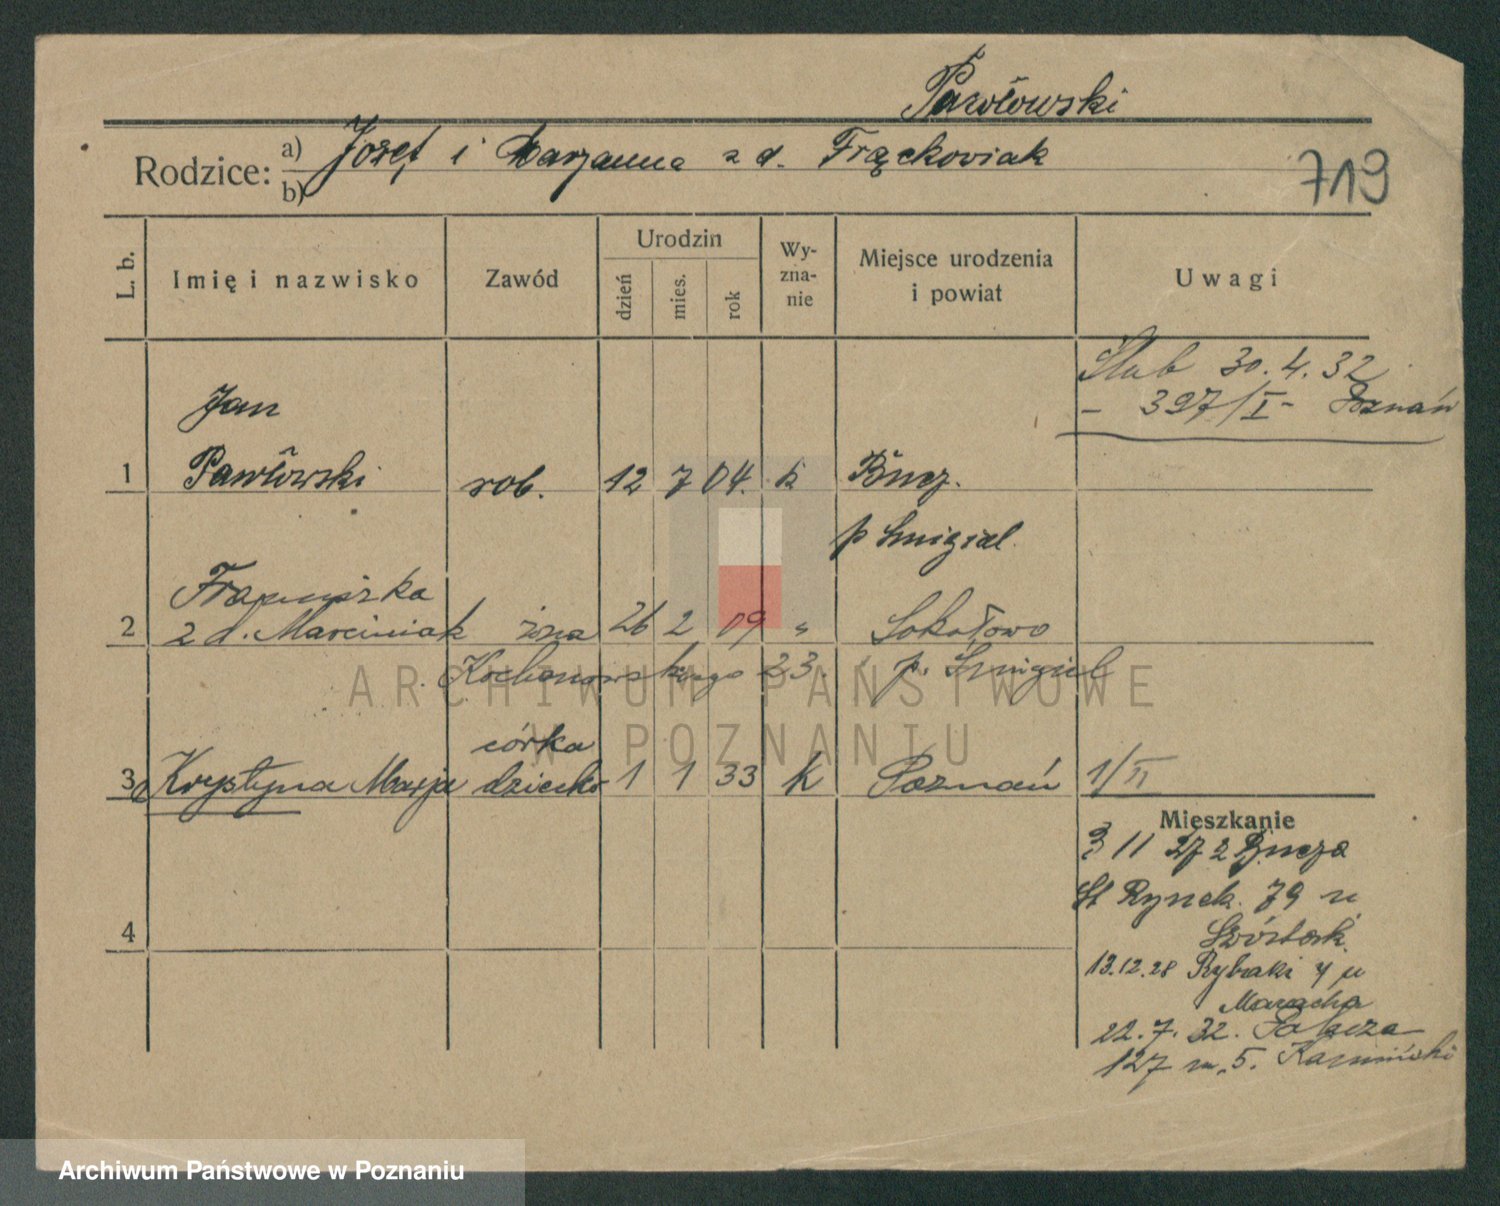 Pawłowski
Rodzice: a) Józef i Marjanna z d. Frąckowiak
b)
719
L. b.
Imię i nazwisko
Zawód
Urodzin
dzień
mies.
rok
Wy-
zna-
nie
Miejsce urodzenia
i powiat
Uwagi
Ślub 30. 4. 32
- 397/I - Poznań
Jan
1 Pawłowski rob. 12 7 04. k Bucz.
p Śmigiel
Franciszka
2 z d. Marciniak żona 26 2 09 " Sokołowo
Kochanowskiego 23. p. Śmigiel
córka
3 Krystyna Marja dziecko 1 1 33 k Poznań 1/II
Mieszkanie
3 11 27 z Bucza
St Rynek. 79 u
4
13.12.28 Rybaki 4 u
22. 7. 32. Palacza
127 m. 5. Kamiński
ARCHIWUM PAŃSTWOWE
W POZNANIU
Archiwum Państwowe w Poznaniu